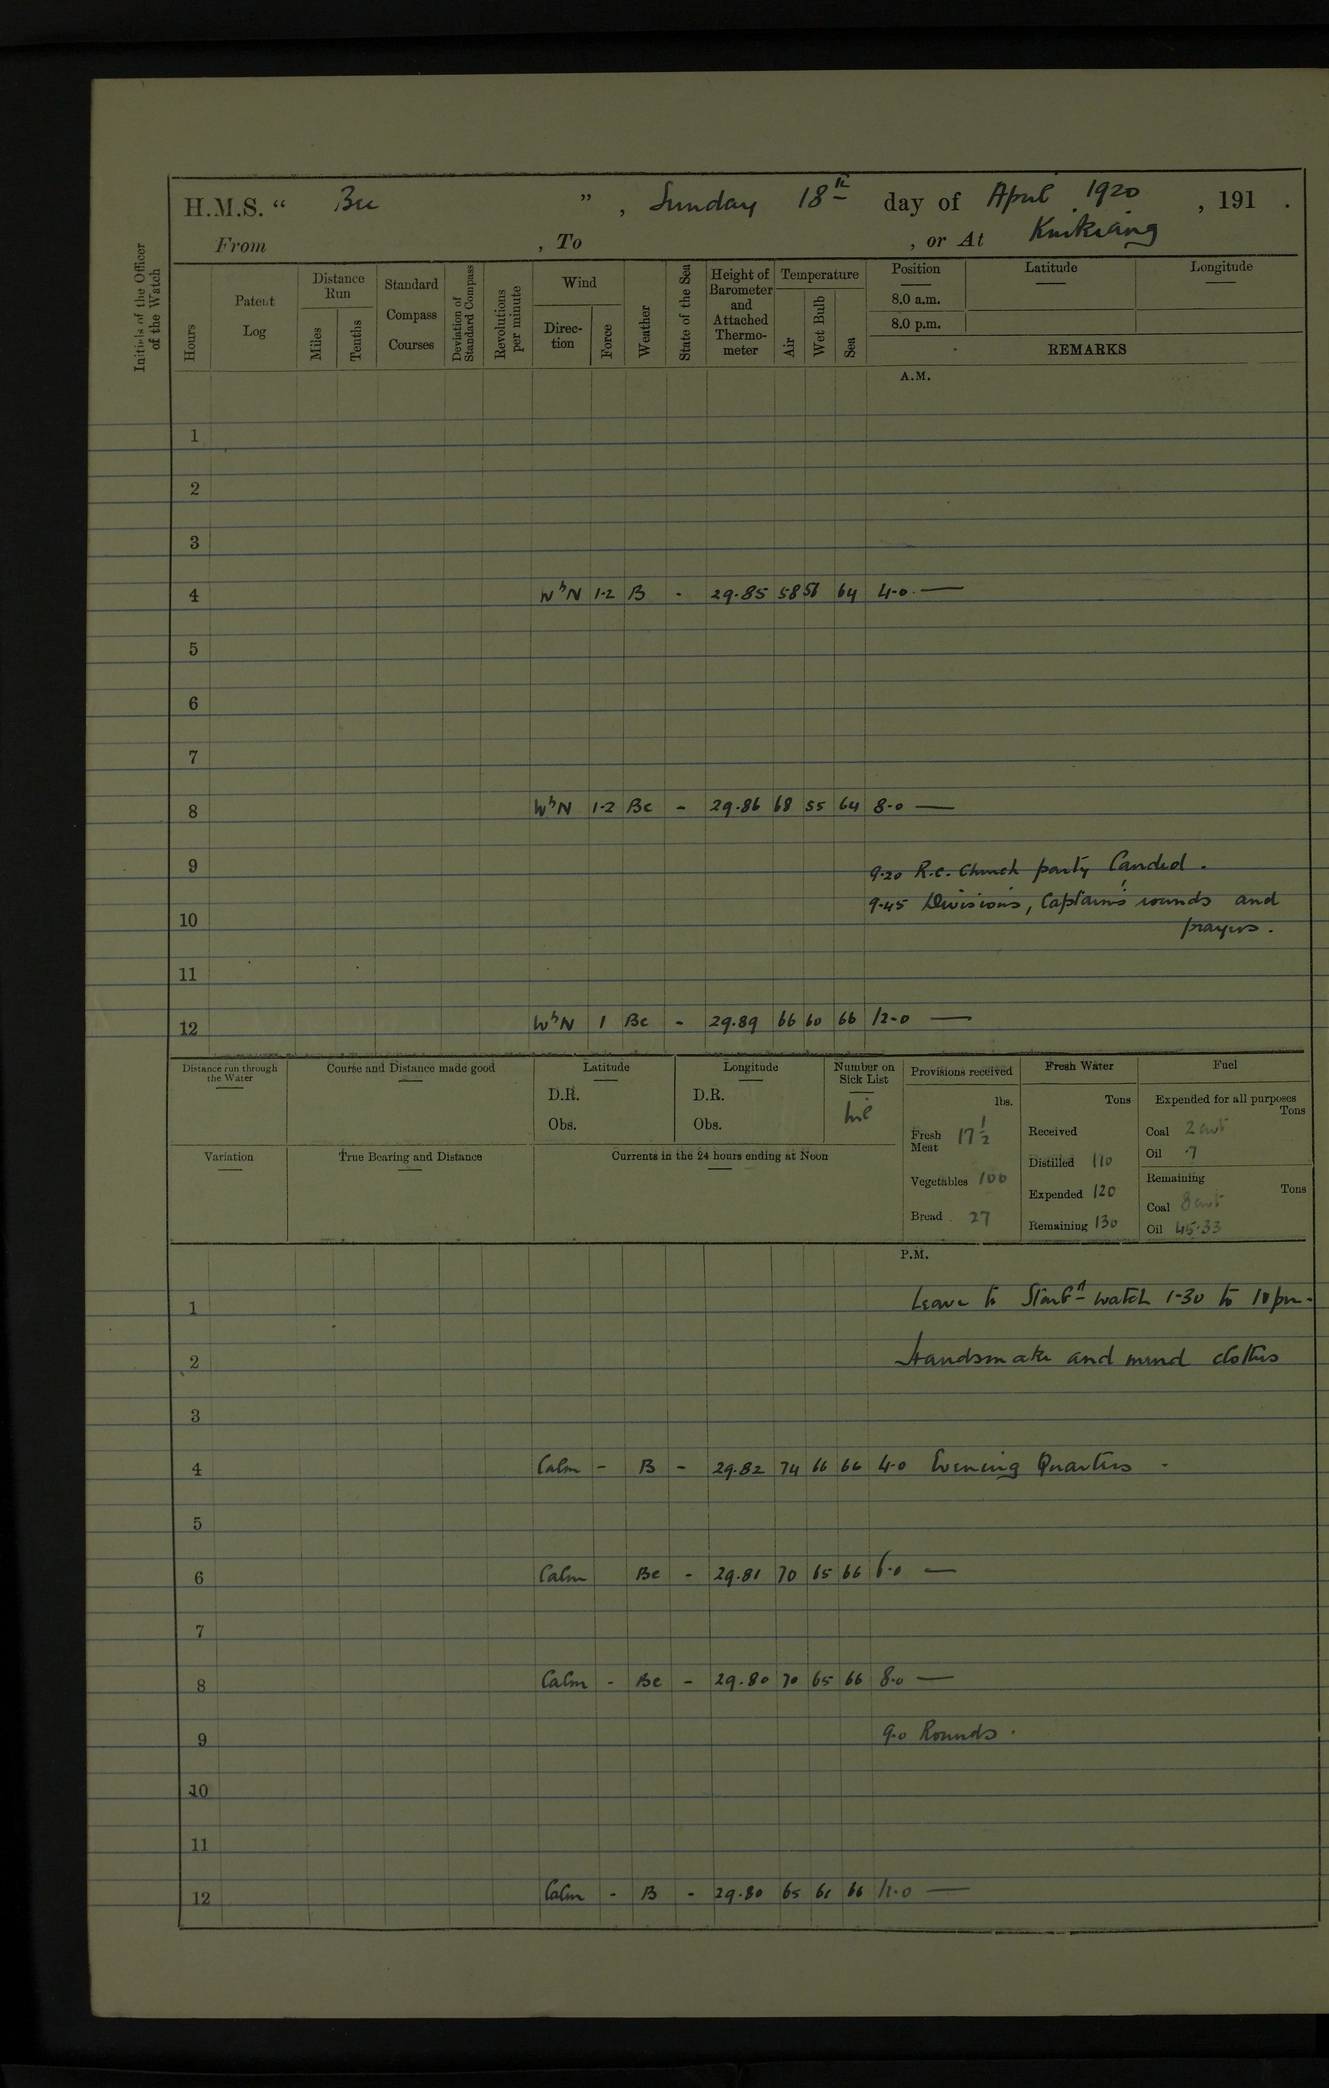 H.M.S. “ Bee ” , Sunday 18th day of April 1920 , 191 .
From , To , or At Kiukiang
Initials of the Officer of the Watch
Hours
Patent Log
Distance Run
Miles
Tenths
Standard Compass Courses
Deviation of Standard Compass
Revolutions per minute
Wind
Direc-tion
Force
Weather
State of the Sea
Height of Barometer and Attached Thermo-meter
Temperature
Air
Wet Bulb
Sea
Position Latitude Longitude
8.0 a.m.
8.0 p.m.
REMARKS
A.M.
1
2
3
4 WbN 1-2 B - 29.85 58 56 64 4.0 —
5
6
7
8 WbN 1-2 Bc - 29.86 68 55 64 8.0 —
9 9.20 R.C. Church party Landed.
9.45 Divisions, Captain's rounds and
10 prayers.
11
12 WbN 1 Bc - 29.89 66 60 66 12.0 —
Distance run through the Water
Course and Distance made good
Latitude
D.R.
Obs.
Longitude
D.R.
Obs.
Number on Sick List
Nil
Provisions received
lbs.
Fresh Meat 17 1/2
Vegetables 100
Bread 27
Fresh Water
Tons
Received
Distilled 110
Expended 120
Remaining 130
Fuel
Expended for all purposes
Tons
Coal 2 cwt
Oil .7
Remaining
Tons
Coal 8 cwt
Oil 45.33
Variation
True Bearing and Distance
Currents in the 24 hours ending at Noon
P.M.
1 Leave to Starbd watch 1-30 to 10 pm.
2 Hands make and mend clothes
3
4 Calm - B - 29.82 74 66 66 4.0 Evening Quarters.
5
6 Calm Bc - 29.81 70 65 66 6.0 —
7
8 Calm - Bc - 29.80 70 65 66 8.0 —
9 9.0 Rounds.
10
11
12 Calm - B - 29.80 65 61 66 12.0 —